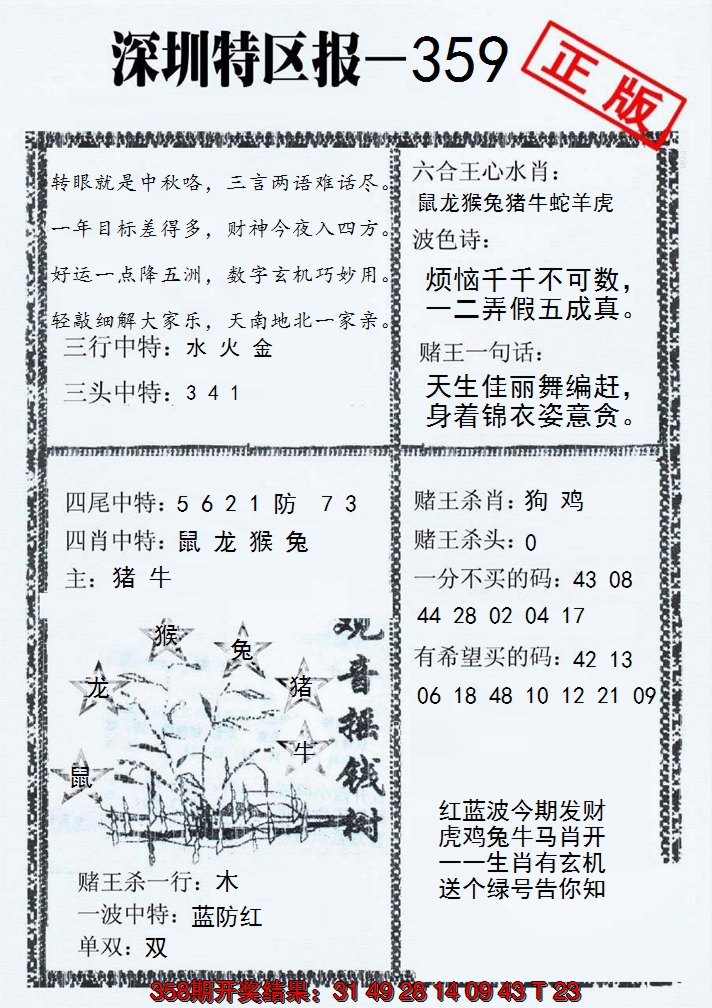 深圳特区报—359
正版
转眼就是中秋咯，三言两语难话尽。
一年目标差得多，财神今夜入四方。
好运一点降五洲，数字玄机巧妙用。
轻敲细解大家乐，天南地北一家亲。
三行中特：水 火 金
三头中特：3 4 1
六合王心水肖：
鼠龙猴兔猪牛蛇羊虎
波色诗：
烦恼千千不可数，
一二弄假五成真。
赌王一句话：
天生佳丽舞编赶，
身着锦衣姿意贪。
四尾中特：5 6 2 1 防 7 3
四肖中特：鼠 龙 猴 兔
主：猪 牛
猴
兔
龙
猪
牛
鼠
观音摇钱树
赌王杀一行：木
一波中特：蓝防红
单双：双
赌王杀肖：狗 鸡
赌王杀头：0
一分不买的码：43 08
44 28 02 04 17
有希望买的码：42 13
06 18 48 10 12 21 09
红蓝波今期发财
虎鸡兔牛马肖开
一一生肖有玄机
送个绿号告你知
358期开奖结果：31 49 28 14 09 43 T 23